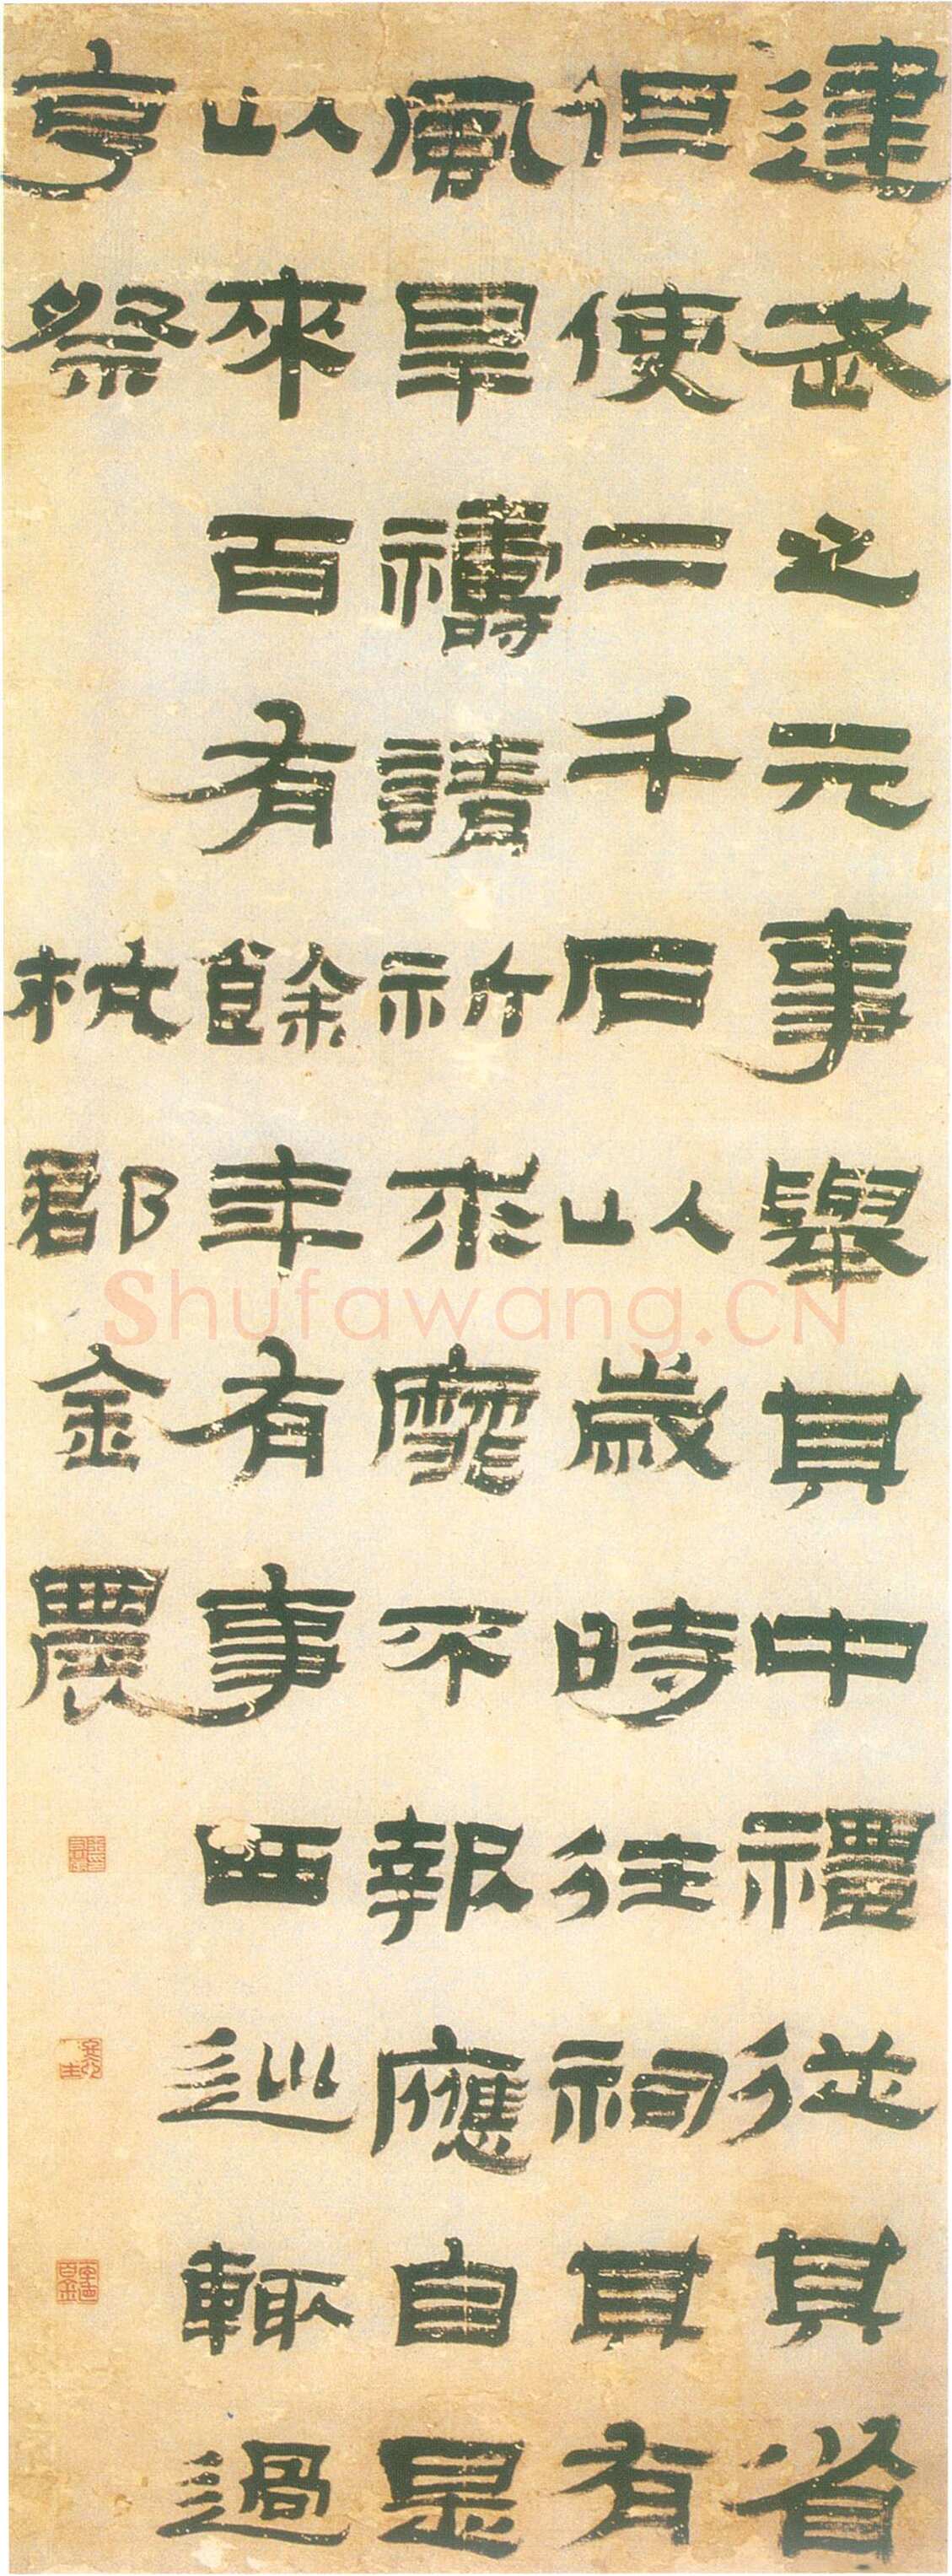 建武之元事舉其中禮從其省
但使二千石以歲時往祠其有
風旱禱請祈求靡不報應自是
以來百有餘年有事西巡輒過
亨祭
杭郡金農
Shufawang.CN